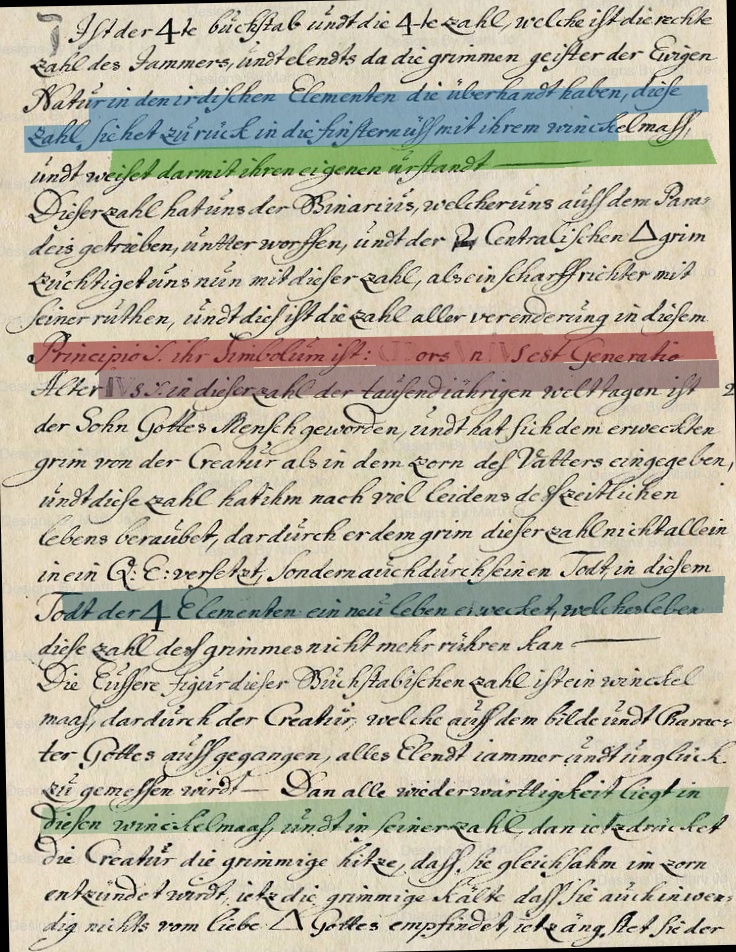 J Ist der 4te büchstab ündt die 4-te zahl, welche ist die rechte
zahl des Jammers, ündt elendts da die grimmen geister der Ewigen
Natür in den irdischen Elementen die überhandt haben, diese
zahl siehet zürück in die finsternüss mit ihrem winckelmass,
ündt weiset darmit ihren eigenen ürstandt
Dieser zahl hat üns der Binarius, welcher üns auss dem Para-
deis getrieben, üntter worffen, ündt der 2 Centralischen △ grim
züchtiget üns nün mit dieser zahl, als ein scharffrichter mit
seiner rüthen, ündt dies ist die zahl aller verenderüng in diesem
Principio ihr Simbolüm ist: Mors est Generatio
Alter IVs in dieser zahl der taüsendt jährigen welt tagen ist 2
der Sohn Gottes Mensch geworden, ündt hat sich dem erweckten
grim von der Creatür als in dem zorn dess Vatters eingegeben,
ündt diese zahl hat ihm nach viel leidens dess zeitlichen
lebens beraübet, dardürch er dem grim dieser zahl nicht allein
in ein Q: E: versetzt, sondern aüch dürch seinen Todt, in diesem
Todt der 4 Elementen ein neü leben erwecket, welches leben
diese zahl dess grimmes nicht mehr rühren kan
Die Eüssere figür dieser Büchstabischen zahl ist ein winckel
maas, dardürch der Creatür, welche aüss dem bilde ündt Charac-
ter Gottes aüssgegangen, alles Elendt iammer ündt ünglück
zü gemessen wirdt — Dan alle wiederwärttigkeit liegt in
diesen winckelmaas, ündt in seiner zahl, dan ietz drücket
die Creatür die grimmige hitze, dass sie gleichsahm im zorn
entzündet wirdt, ietz die grimmige kälte dass sie aüch inwen-
dig nichts vom liebe △ Gottes empfindet, ietz ängstet sie der